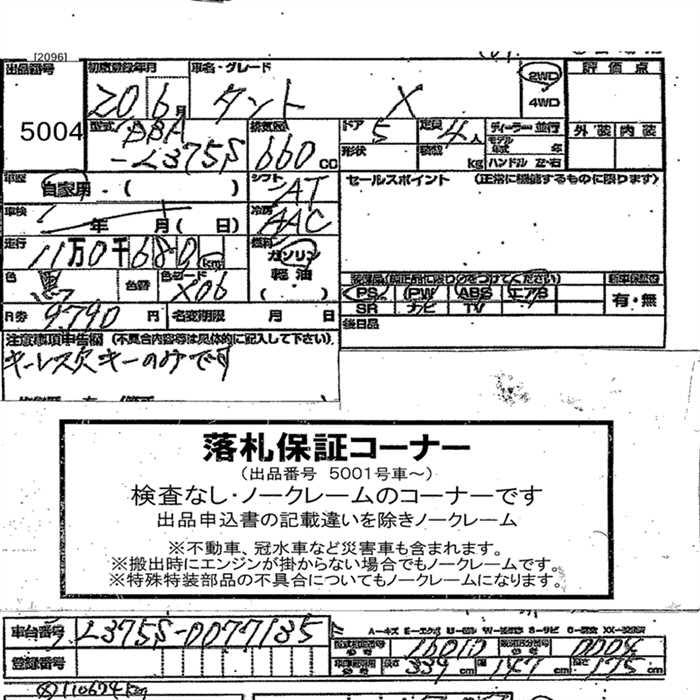 [2096]
出品番号 初度登録年月 車名・グレード 評価点
5004 20 6月 タント X 2WD 4WD
型式 DBA-L375S 排気量 660 CC ドア 5 定員 4人 ディーラー・並行 外装 内装
形状 積載 kg モデル年式 年 ハンドル 左・右
車歴 自家用・( ) シフト AT セールスポイント (正常に機能するものに限ります)
車検 年 月 ( 日) 冷房 AAC
走行 11万0千680 km 燃料 ガソリン 軽油 ( )
色 黒 色替 色コード X06
装備品(純正品に限り○をつけてください) 新車保証書
PS PW ABS エアB 有・無
SR ナビ TV
R券 9790円 名変期限 月 日 後日品
注意事項申告欄 (不具合内容等は具体的に記入して下さい)
キーレス欠キーのみです
落札保証コーナー
(出品番号 5001号車~)
検査なし・ノークレームのコーナーです
出品申込書の記載違いを除きノークレーム
※不動車、冠水車など災害車も含まれます。
※搬出時にエンジンが掛からない場合でもノークレームです。
※特殊特装部品の不具合についてもノークレームになります。
車台番号 L375S-0077135
型式指定番号 16010 類別区分番号 0004
登録番号 長さ 339 cm 幅 147 cm 高さ 175 cm